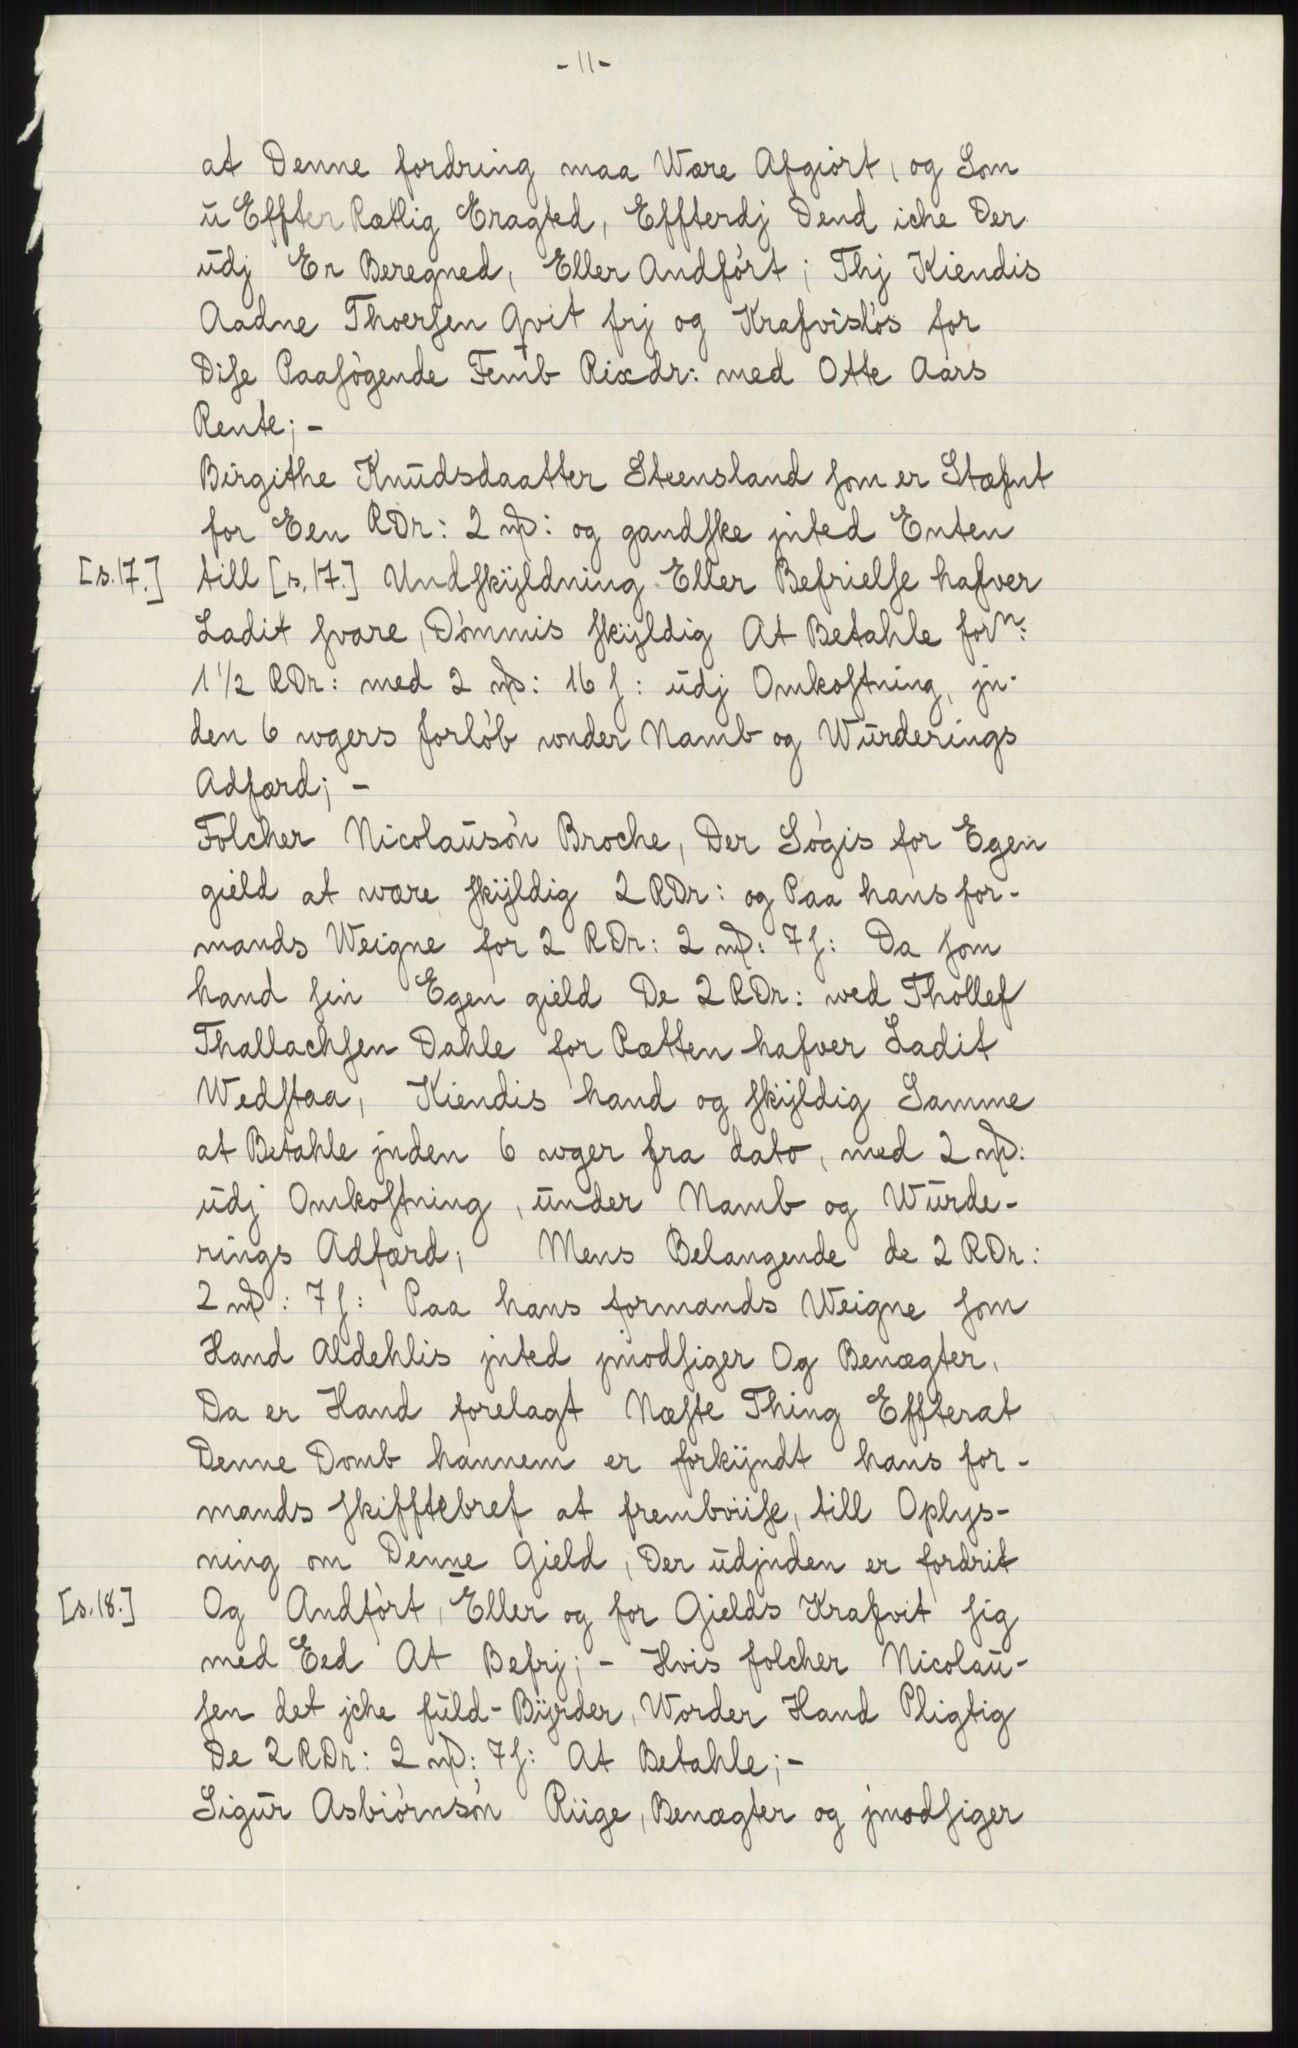 -11-
at Denne fordring maa Wære Afgiort, og Som
ū Effter Rætlig Eragted, Effterdj Dend iche Der
ūdj Er Beregned, Eller Andfórt; Thj Kiendis
Aadne Thoersen Qvit frj og Krafvislós for
Dise Paasógende Femb Rixdr: med Otte Aars
Rente; -
Birgithe Knūdsdaatter Steensland som er Stæfnt
for Een RDr: 2 mß: og gandske jnted Enten
[s.17.] till [s.17.] Undskÿldning Eller Befrielse hafver
Ladit svare, Dómmis skÿldig At Betahle forn:
1 1/2 RDr: med 2 mß: 16 s: ūdj Omkostning, jn-
den 6 wgers forlób wnder Namb og Wūrderings
Adfærd; -
Folcher Nicolaūsón Broche, Der Sógis for Egen
gield at wære skÿldig 2 RDr: og Paa hans for-
mands Weigne for 2 RDr: 2 mß: 7 s: Da som
hand sin Egen gield De 2 RDr: wed Thollef
Thallachsen Dahle for Rætten hafver Ladit
Wedstaa, Kiendis hand og skÿldig Samme
at Betahle jnden 6 wger fra dato, med 2 mß:
ūdj Omkostning, ūnder Namb og Wūrde-
rings Adfærd; Mens Belangende de 2 RDr:
2 mß: 7 s: Paa hans formands Weigne som
Hand Aldehlis jnted jmodsiger Og Benægter,
Da er Hand forelagt Næste Thing Effterat
Denne Domb hannem er forkÿndt hans for-
mands skifftebref at fremboiise, till Oplys-
ning om Denne Gield, Der ūdjnden er fordrit
[s.18.] Og Andfórt, Eller og for Gields Krafvit sig
med Eed At Befrj; - Hvis folcher Nicolaū-
sen det jche fūld-Bÿrder, Worder Hand Pligtig
De 2 RDr: 2 mß: 7 s: At Betahle; -
Sigūr Asbiórnsón Riige, Benægter og jmodsiger